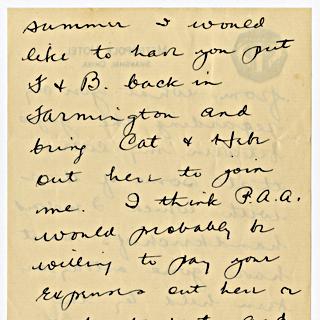 summer I would
like to have you put
F & B. back in
Farmington and
bring Cat & Heb
out here to join
me. I think P.A.A.
would probably be
willing to pay your
expenses out here or
and